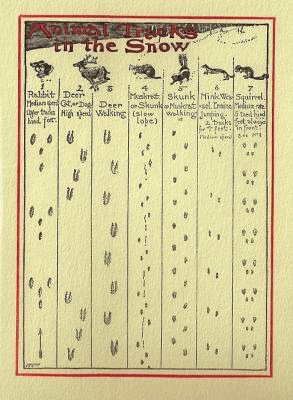 Animal Tracks
in the Snow
Rabbit
Median speed
Upper tracks
hind feet.
2
3
Deer
Cat, or Dog
High speed
Deer
Walking
4
Muskrat
or Skunk
(slow
lope)
5
Skunk
or Muskrat
walking
6
Mink, Wea-
sel, Ermine
Jumping.
2 Tracks
for 4 feet.
7
Squirrel.
Medium rate
Speed hind
feet always
in front.
See No 1